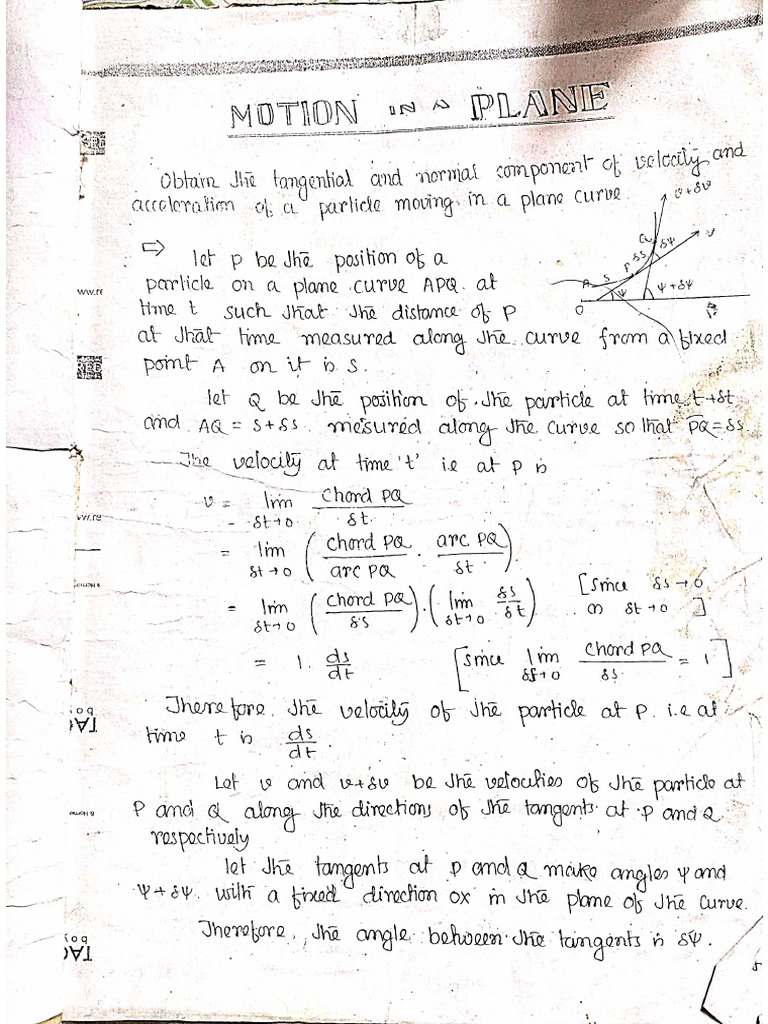 MOTION IN A PLANE
Obtain the tangential and normal component of velocity and
acceleration of a particle moving in a plane curve.
⇒ let p be the position of a
particle on a plane curve APQ. at
time t such that the distance of P
at that time measured along the curve from a fixed
point A on it is s.
v+δv
v
Q
δψ
δs
P
A
S
ψ
ψ+δψ
O
ww.re
RED
let Q be the position of the particle at time t+δt
and AQ = s+δs. mesured along the curve so that PQ=δs.
The velocity at time 't' i.e at p is
v = lim δt→0 chord PQ / δt.
vw.re
= lim δt→0 ( chord PQ / arc PQ . arc PQ / δt ).
= lim δt→0 ( chord PQ / δs ) . ( lim δt→0 δs / δt ) [since δs→0 as δt→0 ]
= 1. ds/dt [since lim δs→0 chord PQ / δs = 1 ]
Therefore, the velocity of the particle at P. i.e at
time t is ds/dt.
Let v and v+δv be the velocities of the particle at
P and Q along the directions of the tangents at P and Q
respectively
let the tangents at p and Q make angles ψ and
ψ+δψ. with a fixed direction ox in the plane of the curve.
Therefore, the angle between the tangents is δψ.